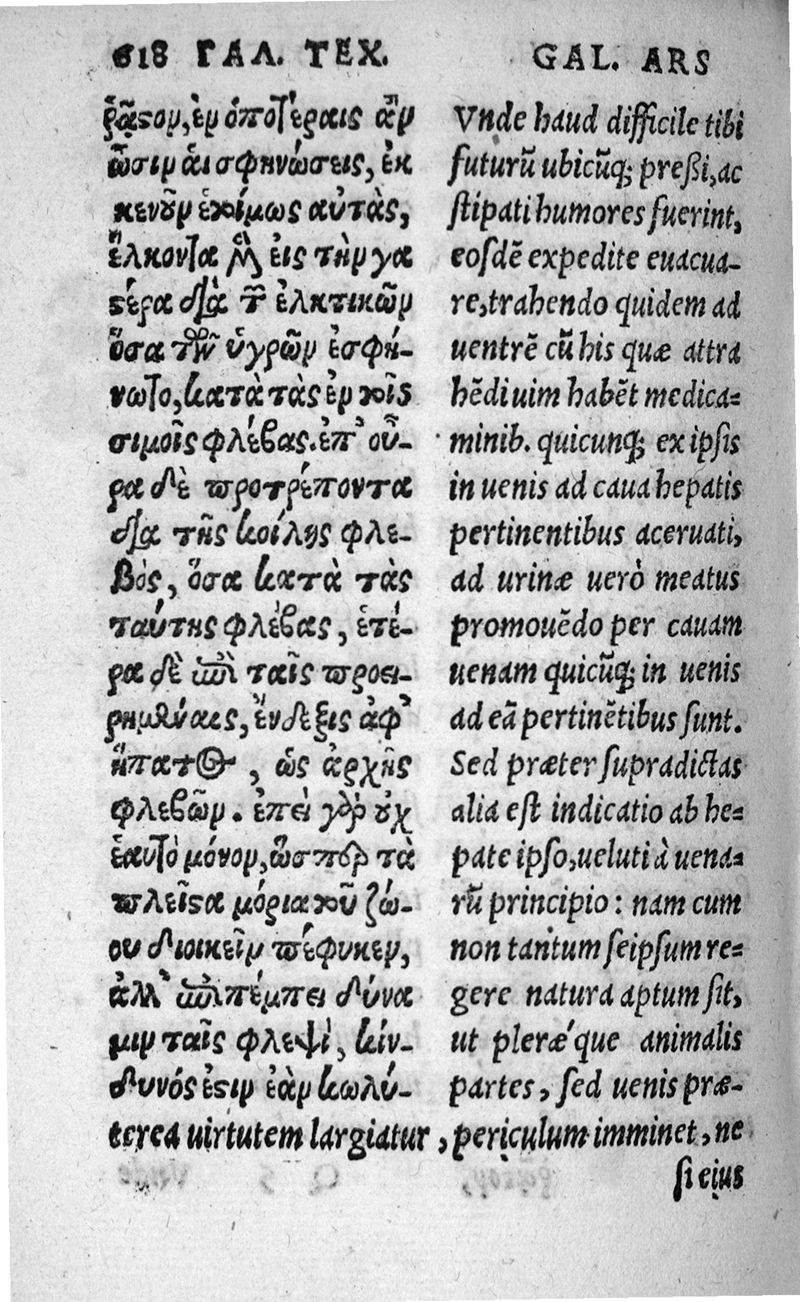 618 ΓΑΛ. ΤΕΧ.
ρᾷστον, ἐν ὁποτέραις ἂν
ὦσιν αἱ σφηνώσεις, ἐκ
κενοῦν ἑτοίμως αὐτὰς,
ἕλκοντα μὲν εἰς τὴν γα
στέρα διὰ τῶν ἑλκτικῶν
ὅσα τῶν ὑγρῶν ἐσφή-
νωτο, κατὰ τὰς ἐν τοῖς
σιμοῖς φλέβας. ἐπ' οὖ-
ρα δὲ προτρέποντα
διὰ τῆς κοίλης φλε-
βὸς, ὅσα κατὰ τὰς
ταύτης φλέβας, ἑτέ-
ρα δὲ ἐπὶ ταῖς προει-
ρημέναις, ἔνδειξις ἀφ'
ἥπατος, ὡς ἀρχῆς
φλεβῶν. ἐπεὶ γὰρ οὐχ
ἑαυτὸ μόνον, ὥσπερ τὰ
πλεῖστα μόρια τοῦ ζώ-
ου διοικεῖν πέφυκεν,
ἀλλ' ἐπιπέμπει δύνα
μιν ταῖς φλεψὶ, κίν-
δυνός ἐστιν ἐὰν κωλύ-
GAL. ARS
Vnde haud difficile tibi
futurũ ubicũq; preßi, ac
ſtipati humores fuerint,
eoſdẽ expedite euacua-
re, trahendo quidem ad
uentrẽ cũ his quæ attra
hẽdi uim habẽt medica=
minib. quicunq; ex ipſis
in uenis ad caua hepatis
pertinentibus aceruati,
ad urinæ uerò meatus
promouẽdo per cauam
uenam quicũq; in uenis
ad eã pertinẽtibus ſunt.
Sed præter ſupradictas
alia eſt indicatio ab he=
pate ipſo, ueluti à uena=
rũ principio: nam cum
non tantum ſeipſum re=
gere natura aptum ſit,
ut pleræ'que animalis
partes, ſed uenis præ-
terea uirtutem largiatur, periculum imminet, ne
ſi eius